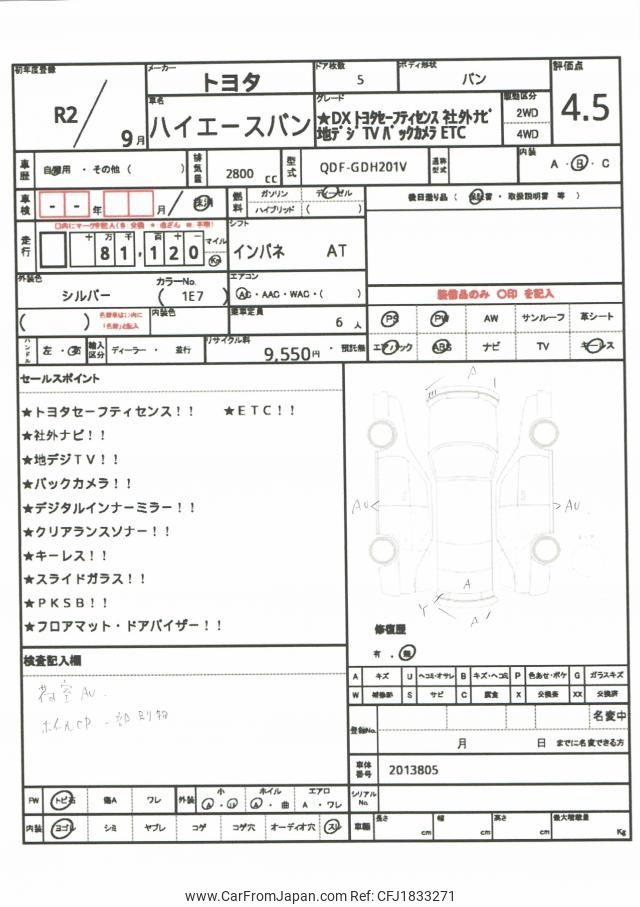 初年度登録
R2
9月
メーカー
トヨタ
ドア枚数
5
ボディ形状
バン
評価点
4.5
車名
ハイエースバン
グレード
★DX トヨタセーフティセンス 社外ナビ
地デジTV バックカメラ ETC
駆動区分
2WD
4WD
車歴
自家用 ・ その他 ( )
排気量
2800 cc
型式
QDF-GDH201V
通称型式
内装
A ・ B ・ C
車検
- - 年 月
燃料
ガソリン
ディーゼル
ハイブリッド ( )
後日送り品 ( 保証書 ・ 取扱説明書 等 )
走行
十 万 千 百 十 一
81,120
マイル
Km
シフト
インパネ AT
外装色
シルバー
カラーNo.
( 1E7 )
エアコン
AC・AAC・WAC・( )
装備品のみ 〇印 を記入
( )
内装色
乗車定員
6 人
PS PW AW サンルーフ 革シート
エアバック ABS ナビ TV キーレス
ハンドル
左 ・ 右
輸入区分
ディーラー ・ 並行
リサイクル料
9,550円 ・ 預託無
セールスポイント
★トヨタセーフティセンス！！ ★ETC！！
★社外ナビ！！
★地デジTV！！
★バックカメラ！！
★デジタルインナーミラー！！
★クリアランスソナー！！
★キーレス！！
★スライドガラス！！
★PKSB！！
★フロアマット・ドアバイザー！！
A
AU
AU
A
Y
A
修復歴
有 ・ 無
検査記入欄
荷室 AU.
A キズ U ヘコミ・オサレ B キズ・ヘコミ P 色あせ・ボケ G ガラスキズ
W 補修跡 S サビ C 腐食 X 交換要 XX 交換済
登録No.
名変中
月 日 までに名変できる方
車体番号
2013805
FW トビ石 傷A ワレ
外装
小 ホイル エアロ
A ・ U A ・ 曲 A ・ ワレ
シリアルNo.
内装 ヨゴレ シミ ヤブレ コゲ コゲ穴 オーディオ穴 スレ
車輌
長さ cm
幅 cm
高さ cm
最大積載量 Kg
www.CarFromJapan.com Ref: CFJ1833271